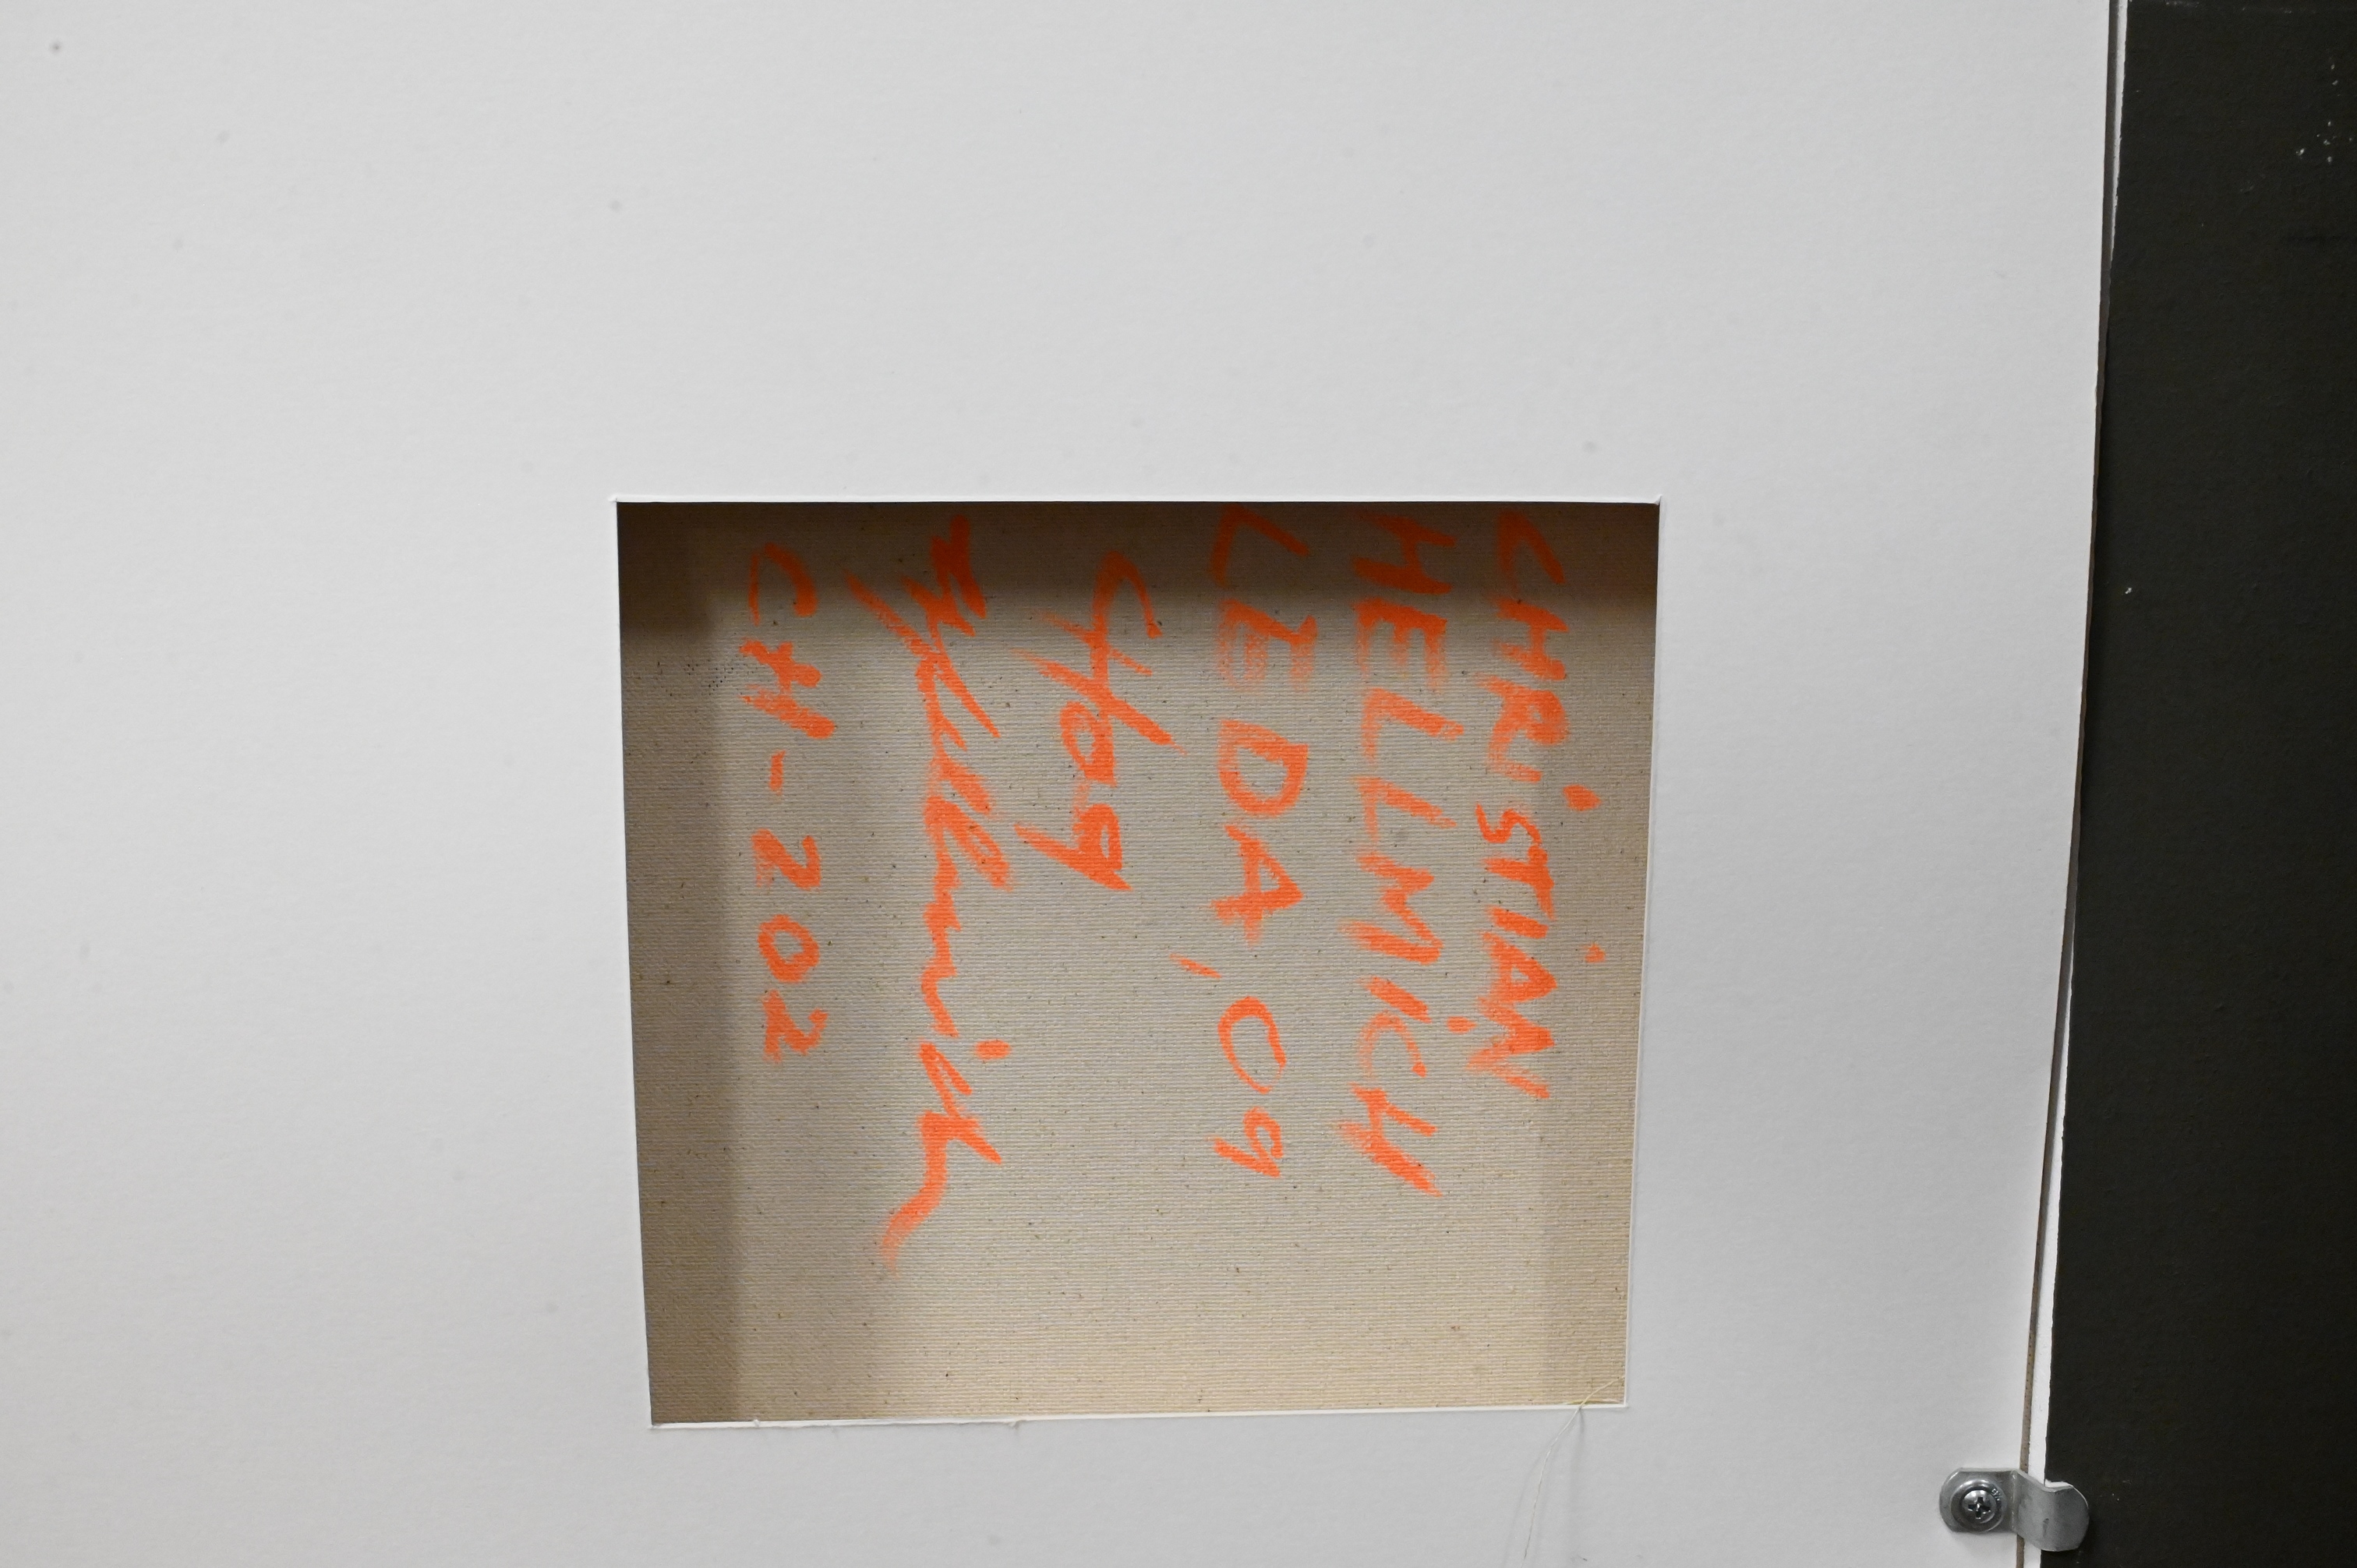 CHRiSTiAN
HELLMiCH
LEDA, 09
C4/09
Hellmich
CH-202